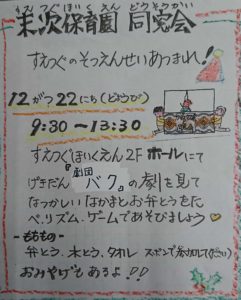 すえつぐほいくえん どうそうかい
末次保育園 同窓会
すえつぐのそつえんせいあつまれ!
12がつ22にち(どようび)
9:30〜13:30
すえつぐほいくえん2F ホールにて
げきだん「劇団 バク」の劇を見て
なつかしいなかまとお弁とうをたべ、リズム・ゲームであそびましょう♡
-もちもの-
弁とう、水とう、タオル
おみやげもあるよ!!